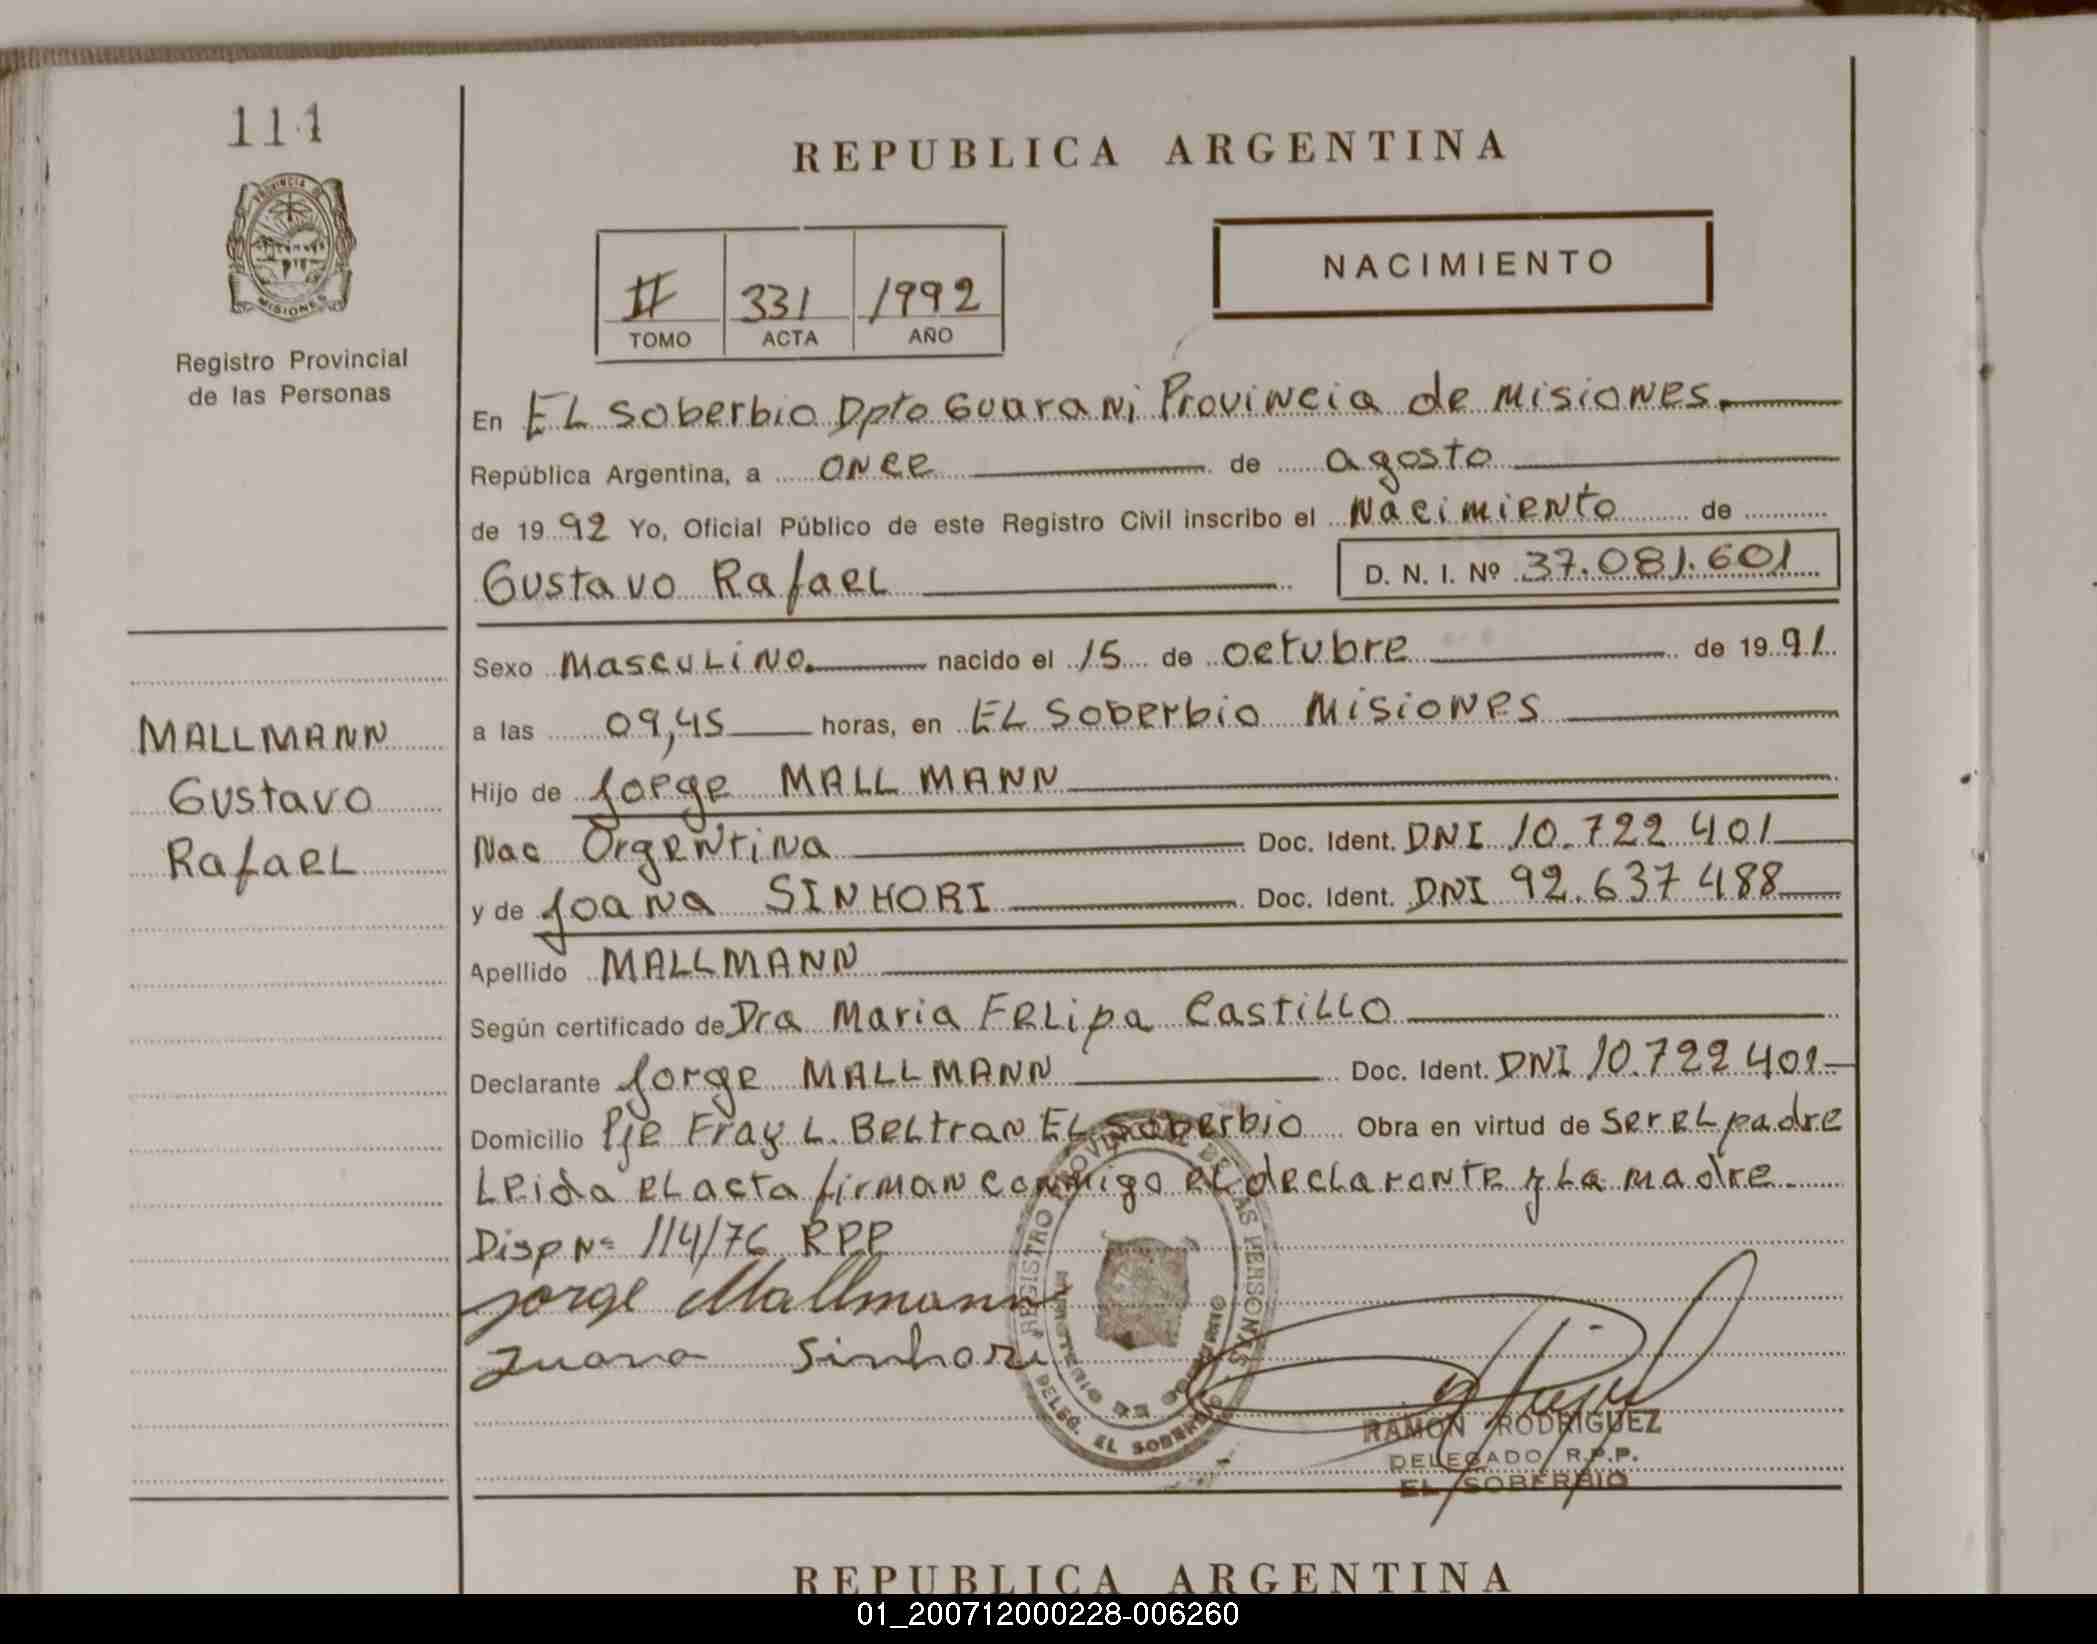 111
PROVINCIA DE
MISIONES
Registro Provincial
de las Personas
MALLMANN
Gustavo
Rafael
REPUBLICA ARGENTINA
II 331 1992
TOMO ACTA AÑO
NACIMIENTO
En EL Soberbio Dpto Guarani Provincia de Misiones.
República Argentina, a once de agosto
de 1992 Yo, Oficial Público de este Registro Civil inscribo el Nacimiento de
Gustavo Rafael D. N. I. Nº 37.081.601
Sexo Masculino. nacido el 15 de octubre de 1991
a las 09,45 horas, en EL Soberbio Misiones
Hijo de Jorge MALLMANN
Nac Orgentina Doc. Ident. DNI 10.722 401
y de Joana SINHORI Doc. Ident. DNI 92.637 488
Apellido MALLMANN
Según certificado de Dra Maria Felipa Castillo
Declarante Jorge MALLMANN Doc. Ident. DNI 10.722 401
Domicilio Pje Fray L. Beltran EL Soberbio Obra en virtud de ser el padre
Leida el acta firman conmigo el declarante y La madre
Disp Nº 114/76 RPP
Jorge Mallmann
Juana Sinhori
REGISTRO PROVINCIAL DE LAS PERSONAS
MINISTERIO DE GOBIERNO
DELEG. EL SOBERBIO
RAMON RODRIGUEZ
DELEGADO R.P.P.
EL SOBERBIO
REPUBLICA ARGENTINA
01_200712000228-006260